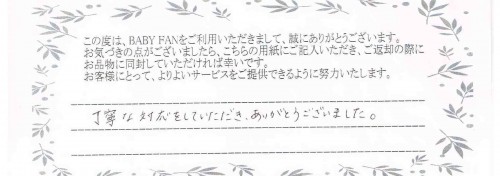 この度は、BABY FANをご利用いただきまして、誠にありがとうございます。
お気づきの点がございましたら、こちらの用紙にご記入いただき、ご返却の際に
お品物に同封していただければ幸いです。
お客様にとって、よりよいサービスをご提供できるように努力いたします。
丁寧な対応をしていただき、ありがとうございました。